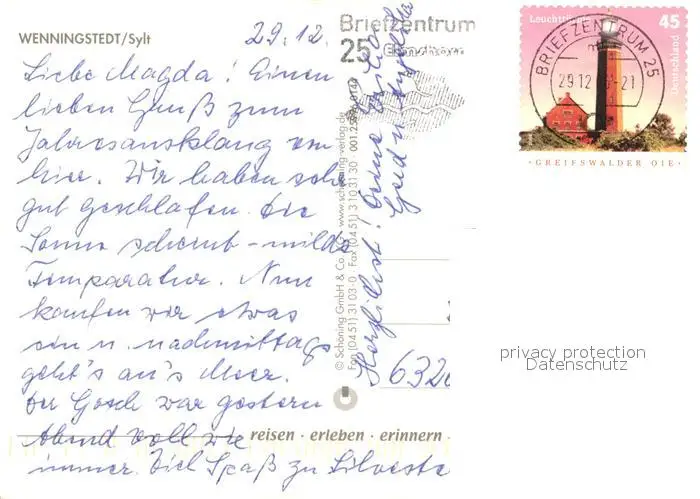 WENNINGSTEDT/Sylt
29.12.
Liebe Magda! Einen
lieben Gruß zum
Jahresausklang von
hier. Wir haben sehr
gut geschlafen. Die
Sonne scheint - milde
Temperatur. Nun
kaufen wir etwas
ein u. nachmittags
geht's an's Meer.
Der Gosch war gestern
Abend voll wie
immer. Viel Spaß zu Silvester
Herzlichst! Deine
Gerd u.
© Schöning GmbH & Co. KG · www.schoening-verlag.de
Fon (0451) 3103-0 · Fax (0451) 3103130
reisen · erleben · erinnern
Briefzentrum
25
Leuchttürme
45
Deutschland
BRIEFZENTRUM 25
29.12
-21
·GREIFSWALDER OIE·
632
privacy protection
Datenschutz